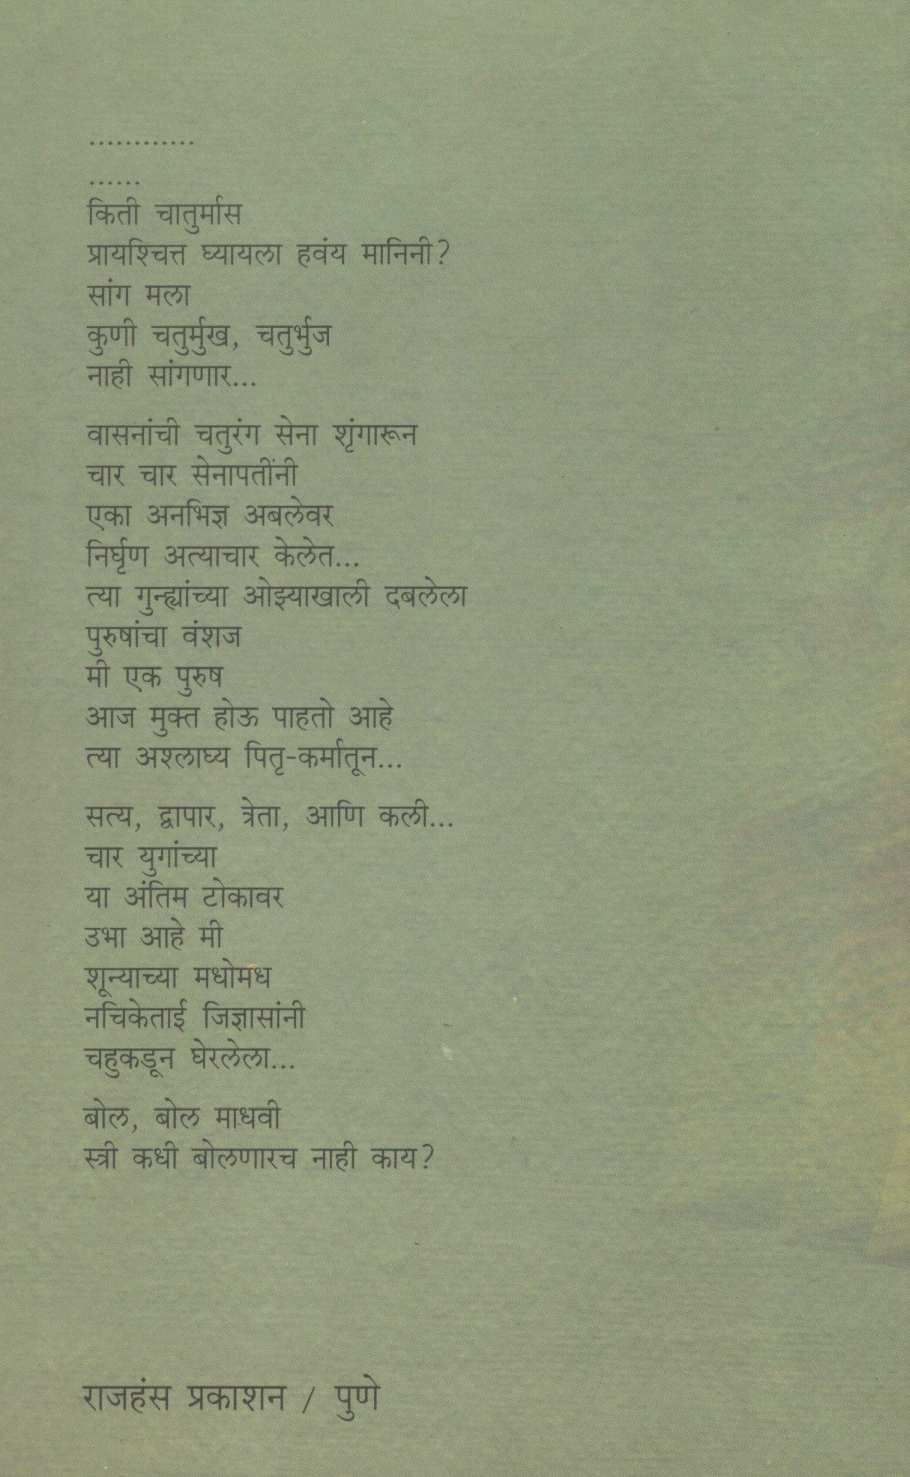 ............
......
किती चातुर्मास
प्रायश्चित्त घ्यायला हवंय मानिनी?
सांग मला
कुणी चतुर्मुख, चतुर्भुज
नाही सांगणार...
वासनांची चतुरंग सेना शृंगारून
चार चार सेनापतींनी
एका अनभिज्ञ अबलेवर
निर्घृण अत्याचार केलेत...
त्या गुन्ह्यांच्या ओझ्याखाली दबलेला
पुरुषांचा वंशज
मी एक पुरुष
आज मुक्त होऊ पाहतो आहे
त्या अश्लाघ्य पितृ-कर्मातून...
सत्य, द्वापार, त्रेता, आणि कली...
चार युगांच्या
या अंतिम टोकावर
उभा आहे मी
शून्याच्या मधोमध
नचिकेताई जिज्ञासांनी
चहुकडून घेरलेला...
बोल, बोल माधवी
स्त्री कधी बोलणारच नाही काय?
राजहंस प्रकाशन / पुणे